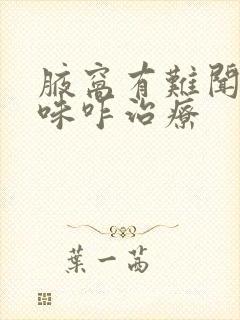 腋窩有難聞
味咋治療
葉一茜